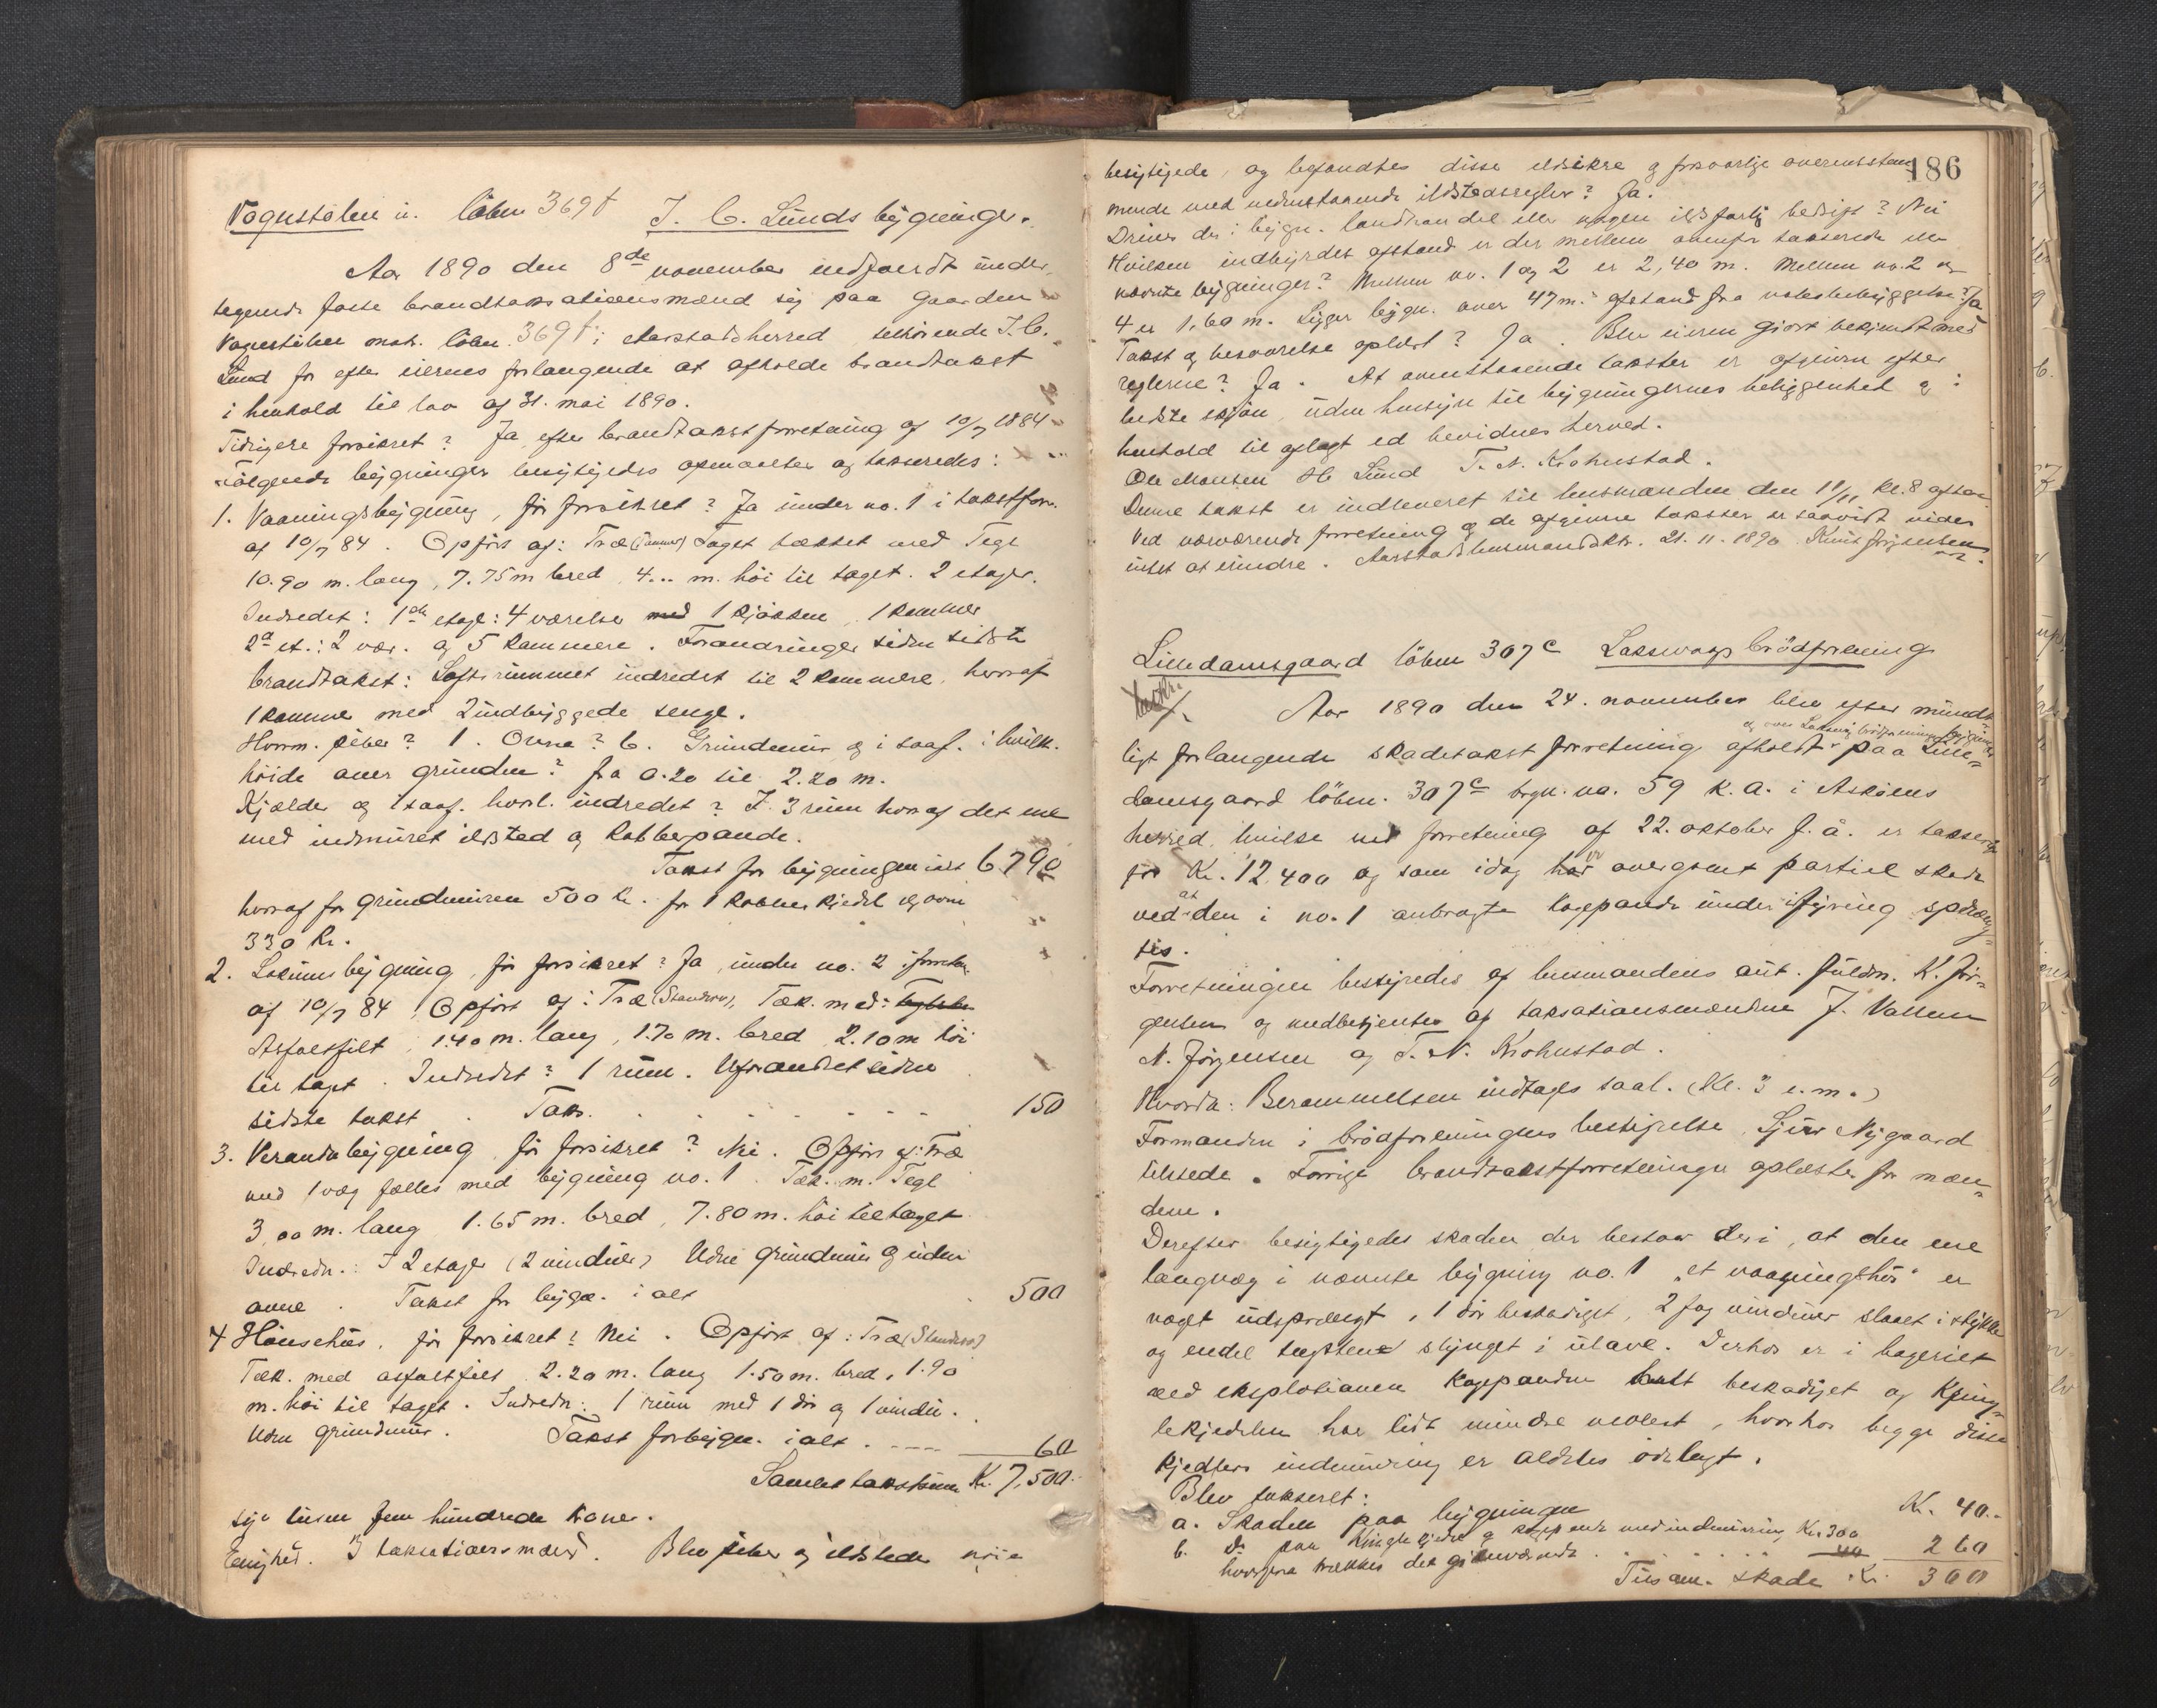 Vognstölen u. löbn 369 f J. C. Lunds bygninger.
Aar 1890 den 8de november indfandt under-
tegnede faste brandtaxationsmænd sig paa Gaarden
Vognstölen matr. löbn. 369 f i Aarstadsherred tilhörende J. C.
Lund for efter eierens forlangende at afholde brandtakst
i henhold til lov af 31. mai 1890.
Tidligere forsikret? Ja efter brandtakstforretning af 10/7 1884
Fölgende bygninger besigtigedes opmaaltes og takseredes:
1. Vaaningsbygning, för forsikret? Ja under no. 1 i takstforr.
af 10/7 84. Opfört af: Træ (Tømmer) Taget tækket med Tegl
10.90 m. lang, 7.75 m bred, 4... m. höi til taget. 2 etager.
Indredet: 1ste etage: 4 værelser med 1 kjökken, 1 kammer
2d et.: 2 vær. og 5 kammere. Forandringer siden sidste
brandtakst: Loftsrummet indredet til 2 kammere, hvoraf
1 kammer med 2 indbyggede senge.
Hvorm. piber? 1. Ovne? 6. Grundmur og i saaf. i hvilk.
höide over grunden? fra 0.20 til 2.20 m.
Kjælder og i saaf. hvorl. indredet? I 3 rum hvoraf det ene
med indmuret ildsted og kobberpande.
Takst for bygningen ialt 6790
hvoraf for grundmuren 500 kr. for 1 kobberkjedel og ovne
330 Kr.
2. Lokums bygning, för forsikret? Ja, under no. 2 i forretn.
af 10/7 84. Opfört af: Træ (Standerv.), Tæk. med:
Asfaltfilt, 1.40 m. lang, 1.70 m. bred 2.10 m höi
til taget. Indredet? 1 rum. Uforandret siden
sidste takst. Takst. . . . . . . . 150
3. Verandabygning, för forsikret? Nei. Opfört af: Træ
med 1 væg fælles med bygning no. 1. Tæk. m. Tegl
3,00 m. lang 1.65 m. bred, 7.80 m. höi til taget
Indredn.: I 2 etager (2 vinduer) Uden grundmur og uden
ovne. Takst for bygn. i alt . 500
4 Hönsehus, för forsikret? Nei. Opfört af: Træ (Standerv.)
Tæk. med asfaltfilt 2.20 m. lang 1.50 m. bred, 1.90
m. höi til taget. Indredn: 1 rum med 1 dör og 1 vindu.
Uden grundmur. Takst for bygn. i alt. ---- 60
Samlet takstsum Kr. 7,500.-
sige tusen fem hundrede kroner.
Enighed. 3 taksationsmænd. Blev piber og ildsteder nöie
186
besigtigede, og befandtes disse ildsikre og forsvarlige overensstem-
mende med nedenstaaende ildstedsregler? Ja.
Drives der i bygn. landhandel eller nogen ildsfarlig bedrift? Nei
Hvilken indbyrdes afstand er der mellem ovenfor takserede eller
nævnte bygninger? Mellem no. 1 og 2 er 2,40 m. Mellem no. 2 og
4 er 1,60 m. Ligger bygn. over 47 m. afstand fra nabobebyggelse? Ja
Takst og besvarelse oplæst? Ja. Blev eieren gjort bekjendt med
reglerne? Ja. At ovenstaaende takster er afgivne efter
bedste skjön, uden hensyn til bygningernes beliggenhed og i
henhold til aflagt ed bevidnes herved.
Ole Monsen H. Lund T. N. Krohnstad.
Denne takst er indleveret til lensmanden den 11/11 kl. 8 aften
Ved nærværende forretning og de afgivne takster er saavidt vides
intet at erindre. Aarstads lensmandsktr. 21. 11. 1890. Knut Jörgensen
Lilledamsgaard löbn 307 c Laksevaags brödforening
Aar 1890 den 24. november blev efter mundt-
ligt forlangende skadetakst forretning afholdt paa Lille-
damsgaard löbn. 307 c brgn. no. 59 k. a. i Asköens
herred, hvilke ved forretning af 22. oktober f. å. er takseret
for Kr. 12,400 og som idag har overgaaet partiel skade
ved at den i no. 1 anbragte kogepande under ifyring spræng-
tes.
Forretningen bestyredes af lensmandens aut. fuldm. K. Jör-
gensen og medbetjentes af taksationsmændene J. Vallum
N. Jörgensen og T. N. Krohnstad.
Hvorda: Berammelsen indtages saal. (Kl. 3 e. m.)
Formanden i brödforeningens bestyrelse Sjur Nygaard
tilstede. Forrige brandtakstforretninger oplæstes for mæn-
dene.
Derefter besigtigedes skaden der bestaar deri, at den ene
langvæg i nævnte bygning no. 1 "et vaaningshus" er
noget udsprængt, 1 dör beskadiget, 2 fag vinduer slaaet i stykker
og endel tagstene slynget i ulave. Derhos er i bageriet
ved eksplosionen kogepanden helt beskadiget og Kringle-
lekjedelen har lidt mindre molest, hvorhos begge disse
kjedlers indmuring er aldeles ödelagt.
Blev takseret:
a. Skaden paa bygningen Kr. 40.-
b. Do paa Kringlekjedel og kogepande med indmuring Kr. 300
hvorfra trækkes det gjenværende . . . . . . 40 260
Tilsam. skade . Kr. 300